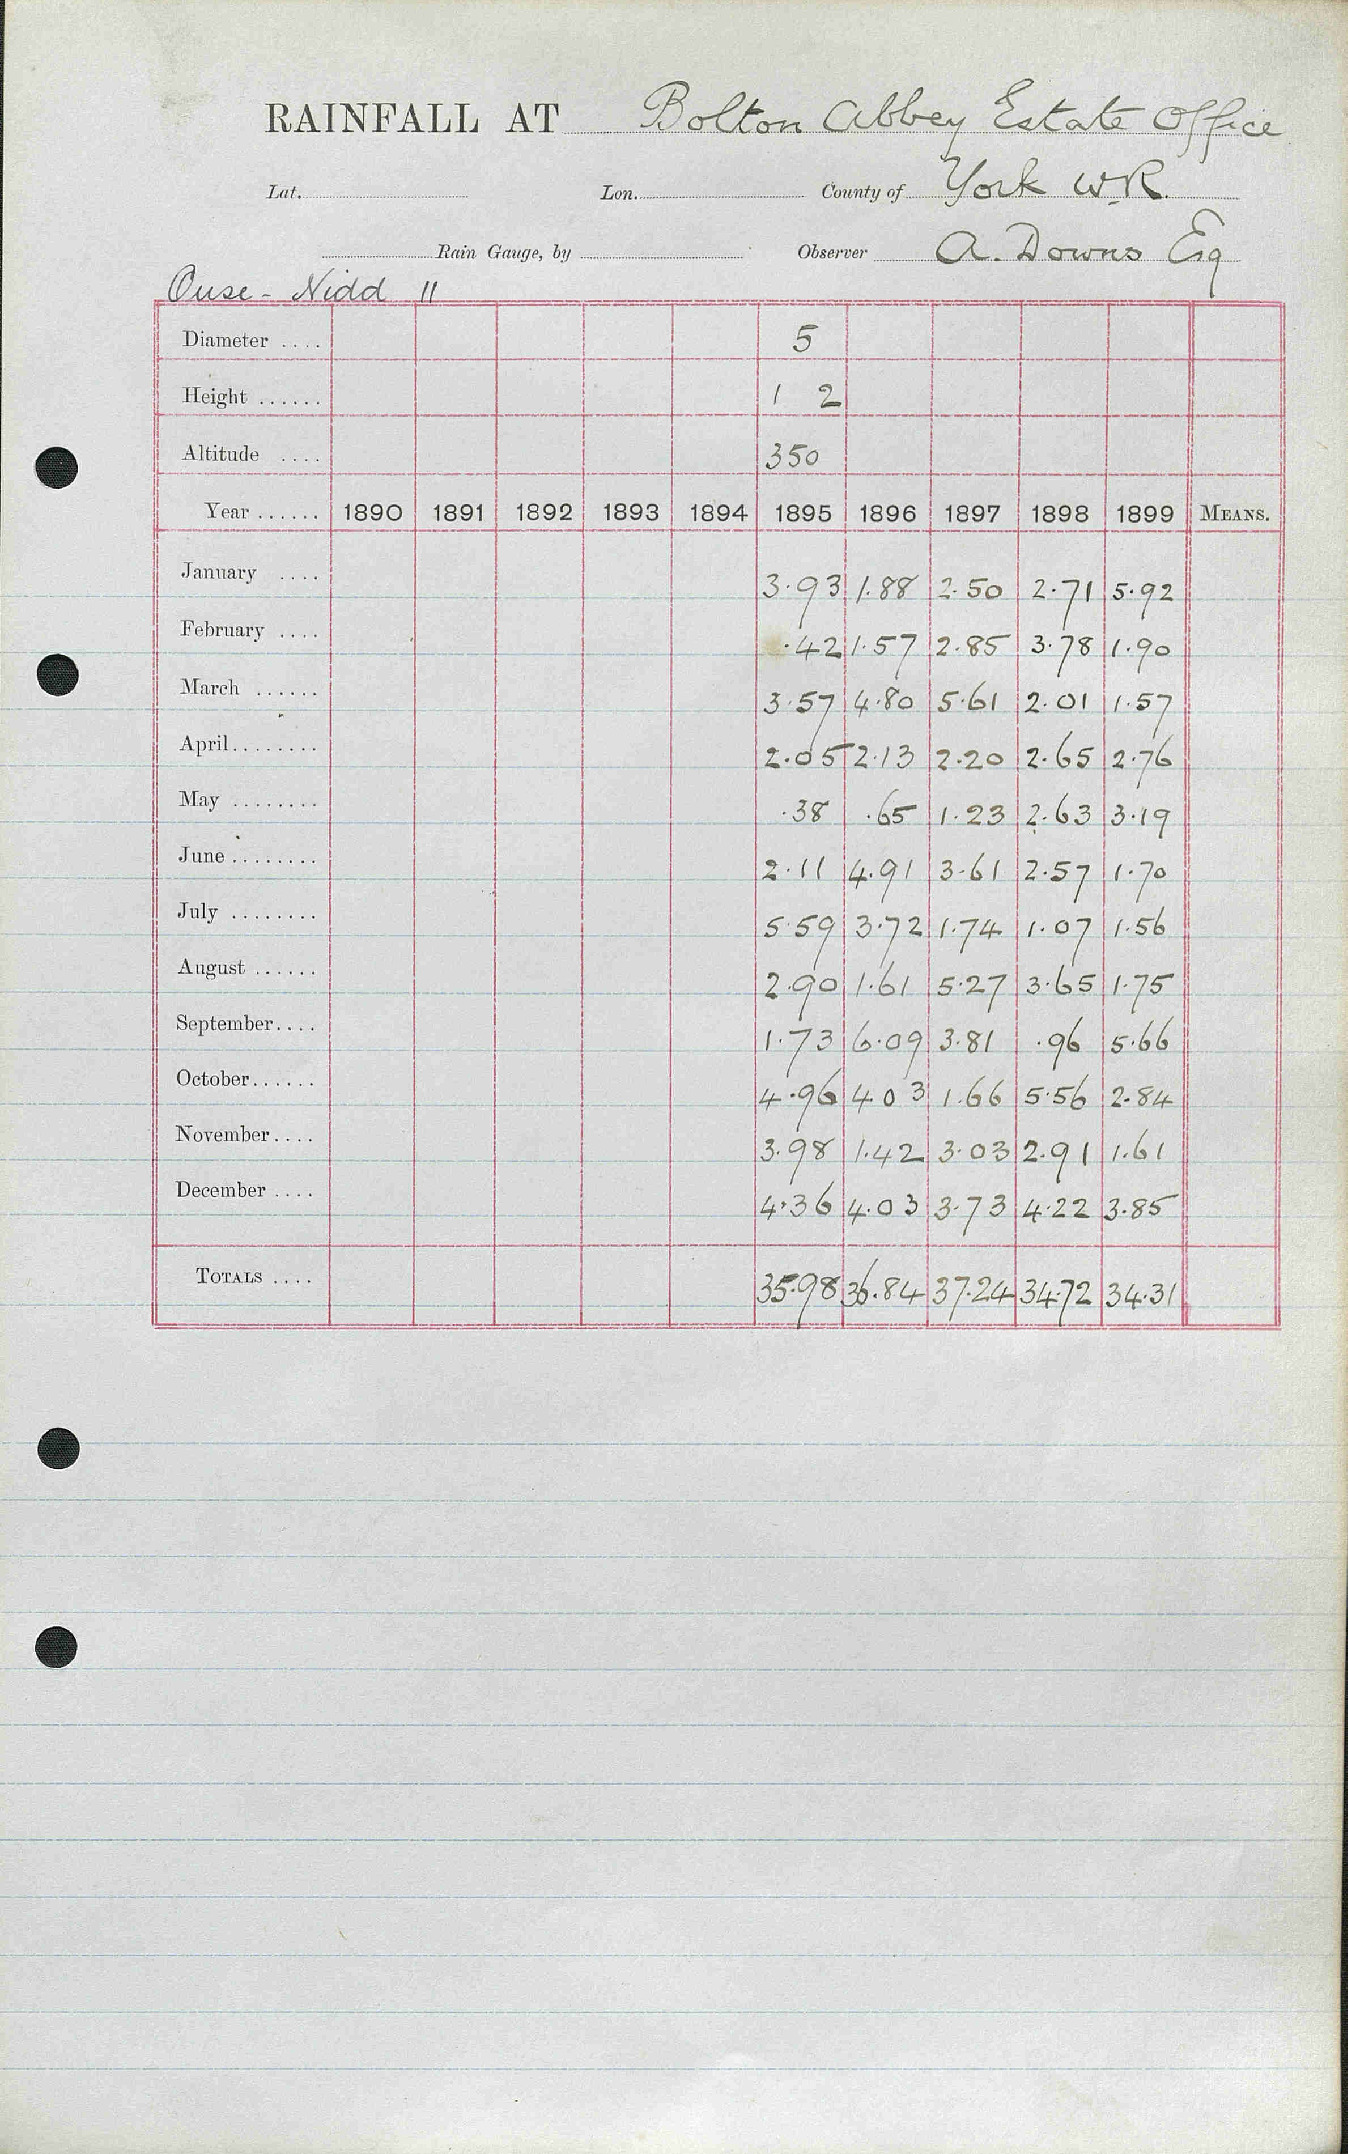 RAINFALL AT Bolton Abbey Estate Office
Lat. Lon. County of York W.R.
Rain Gauge, by Observer A. Downs Esq
Ouse - Nidd 11
Diameter .... 5
Height ...... 1 2
Altitude .... 350
Year ...... 1890 1891 1892 1893 1894 1895 1896 1897 1898 1899 MEANS.
January .... 3.93 1.88 2.50 2.71 5.92
February .... .42 1.57 2.85 3.78 1.90
March ...... 3.57 4.80 5.61 2.01 1.57
April........ 2.05 2.13 2.20 2.65 2.76
May ........ .38 .65 1.23 2.63 3.19
June ........ 2.11 4.91 3.61 2.57 1.70
July ........ 5.59 3.72 1.74 1.07 1.56
August ...... 2.90 1.61 5.27 3.65 1.75
September.... 1.73 6.09 3.81 .96 5.66
October...... 4.96 4 03 1.66 5.56 2.84
November.... 3.98 1.42 3.03 2.91 1.61
December .... 4.36 4.03 3.73 4.22 3.85
TOTALS .... 35.98 36.84 37.24 34.72 34.31